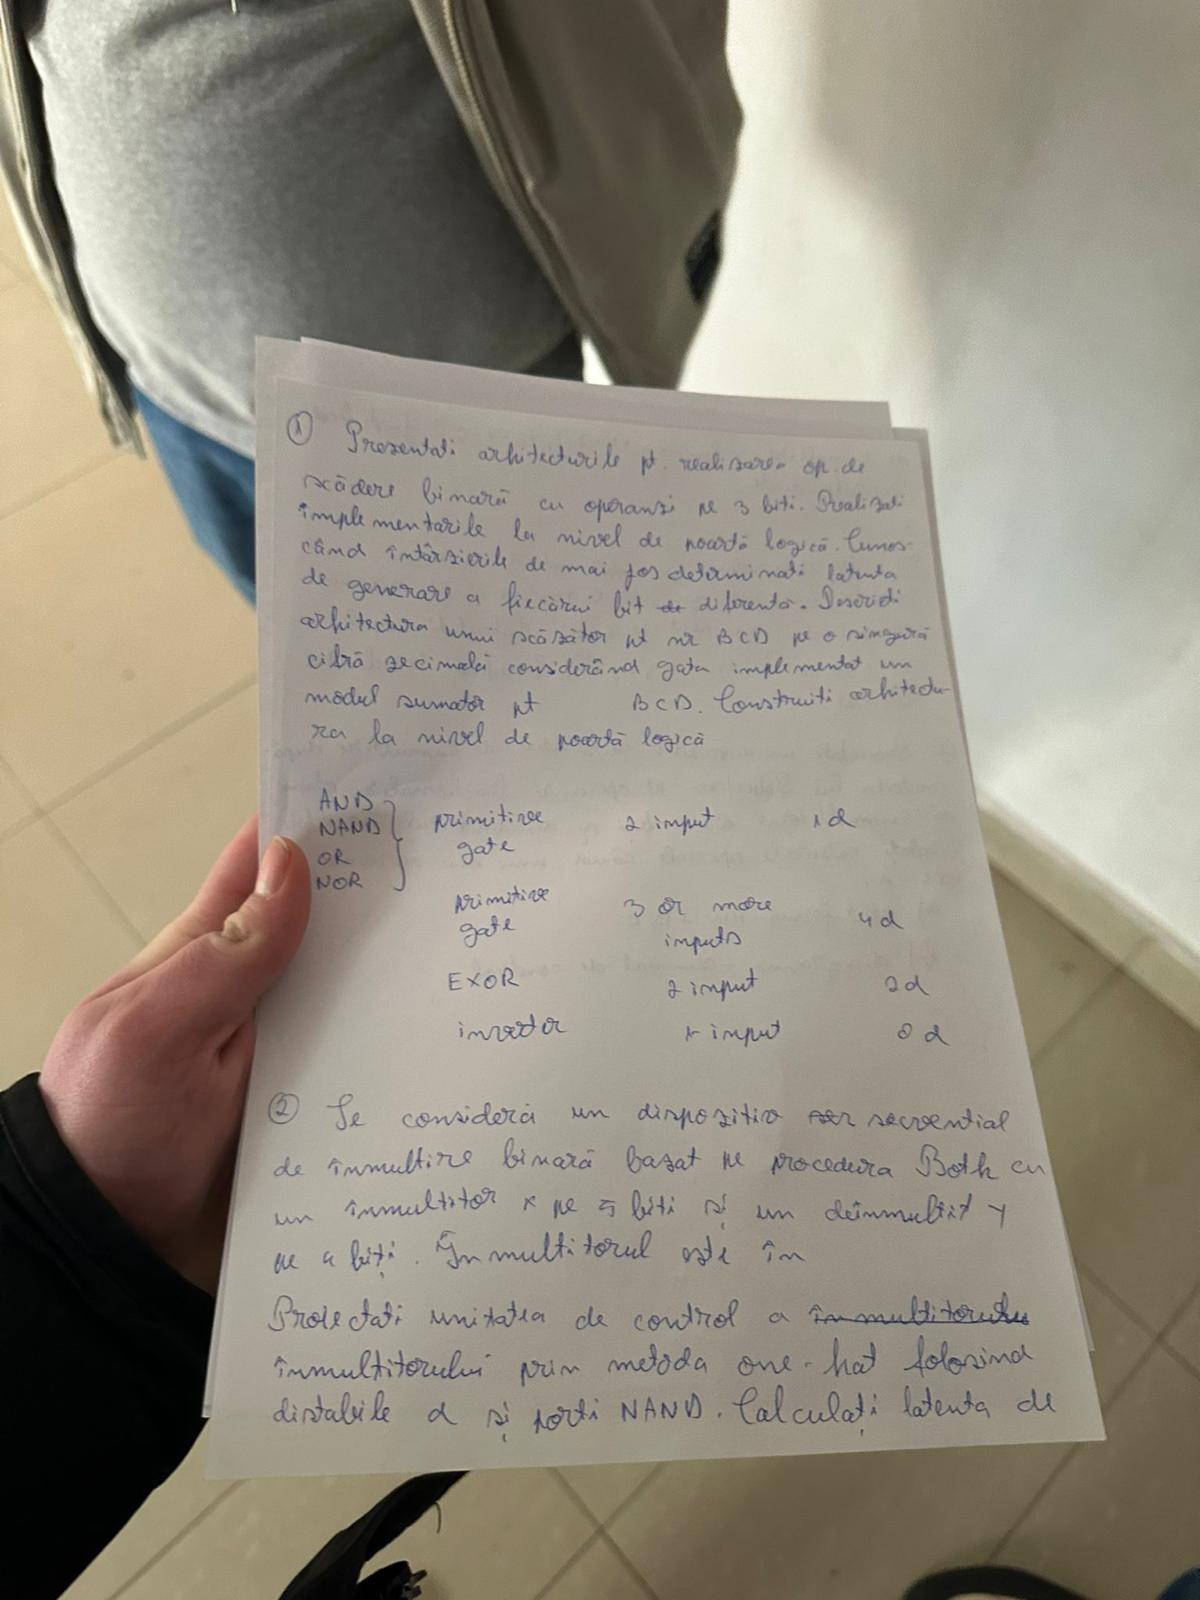 ① Prezentati arhitecturile pt. realizarea op. de
scădere binară cu operanzi pe 3 biti. Realizati
implementarile la nivel de poartă logică. Cunos-
când întârzierile de mai jos determinati latenta
de generare a fiecărui bit de diferentă. Descrieti
arhitectura unui scăzător pt nr BCD pe o singură
cifră zecimală considerând gata implementat un
modul sumator pt BCD. Construiti arhitectu-
ra la nivel de poartă logică
AND
NAND
OR
NOR
primitive gate 2 input 1 d
primitive gate 3 or more inputs 4 d
EXOR 2 input 2d
1 input 0 d
② Se consideră un dispozitiv secvential
de înmultire binară bazat pe procedura Both cu
un înmultitor x pe 5 biti și un deînmultit y
pe 4 biți. Înmultitorul este în
Proiectati unitatea de control a înmultitorului
înmultitorului prin metoda one-hat folosind
distabile d și porti NAND. Calculați latenta de